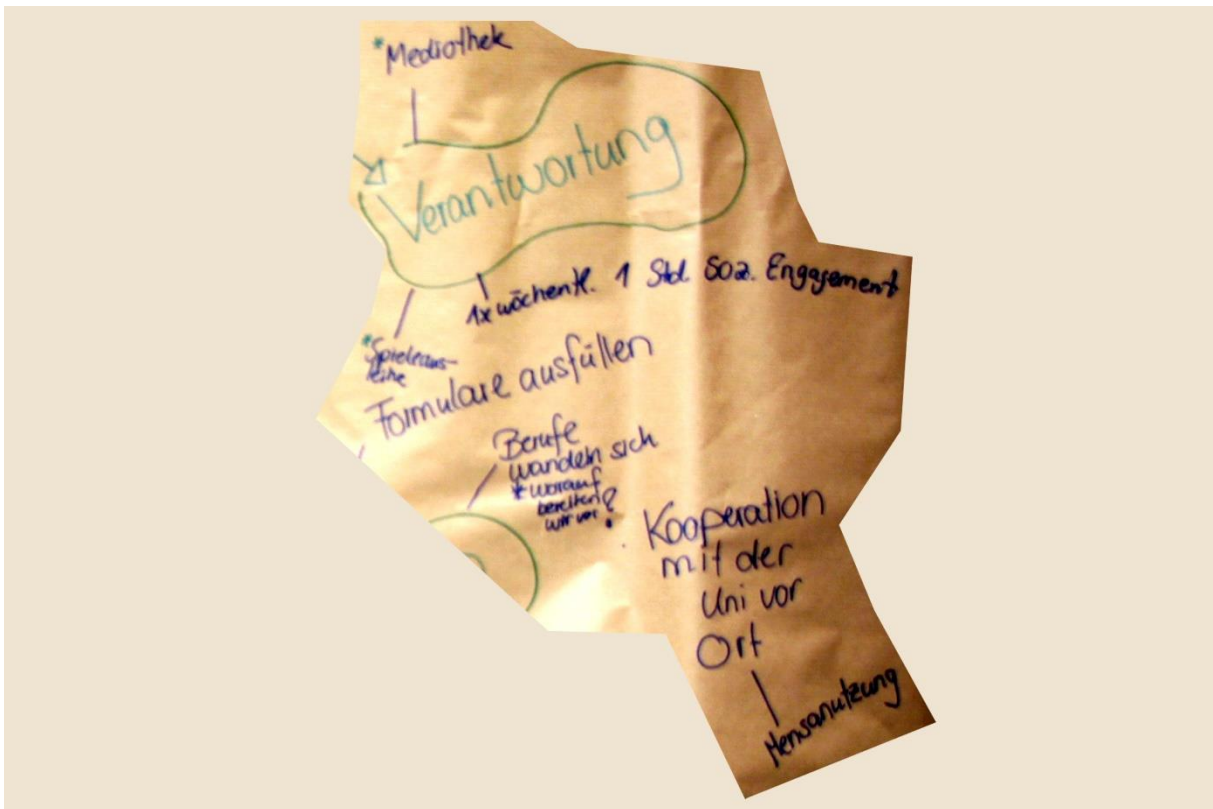 *Mediothek
Verantwortung
1x wöchentl. 1 Std. Soz. Engagement
*Spieleaus-
leihe
Formulare ausfüllen
Berufe
wandeln sich
*worauf
bereiten
wir vor?
Kooperation
mit der
Uni vor
Ort
Mensanutzung